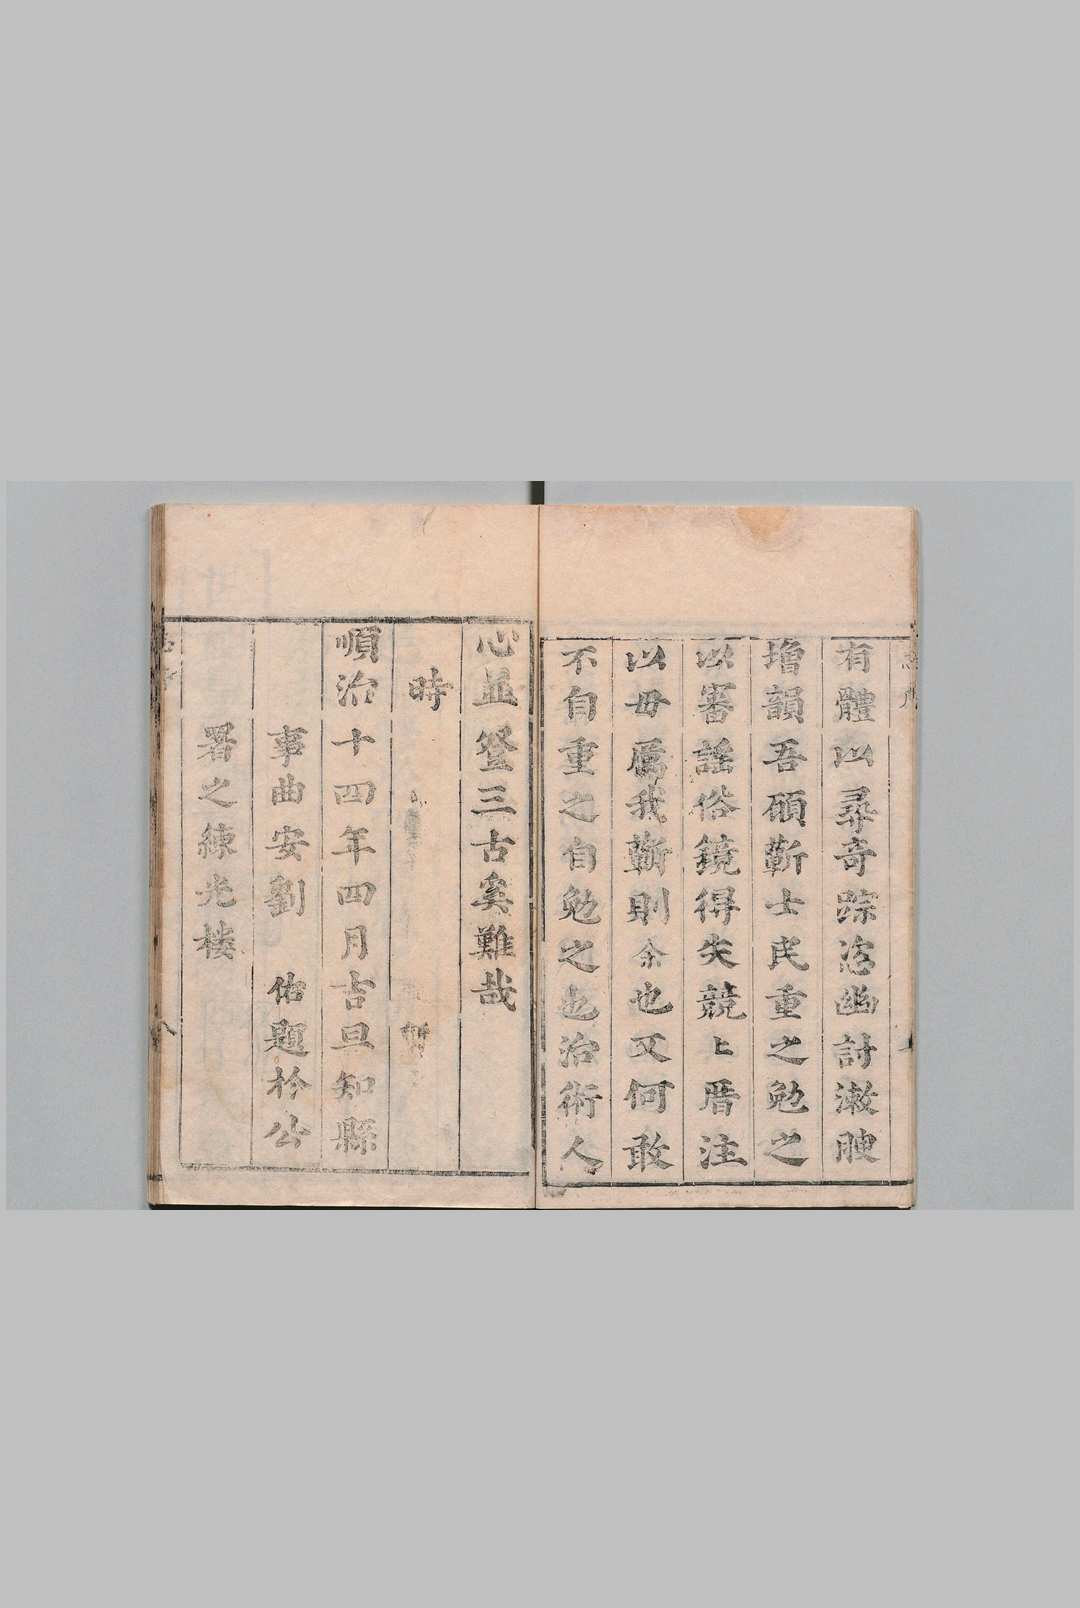 有體以尋奇踪恣幽討潄腴
增韻吾頋蘄士民重之勉之
以審謡俗鏡得失競上厝注
以毋厲我蘄則余也又何敢
不自重之自勉之也治術人
心並登三古奚難哉
時
順治十四年四月吉旦知縣
事曲安劉佑題於公
署之練光楼